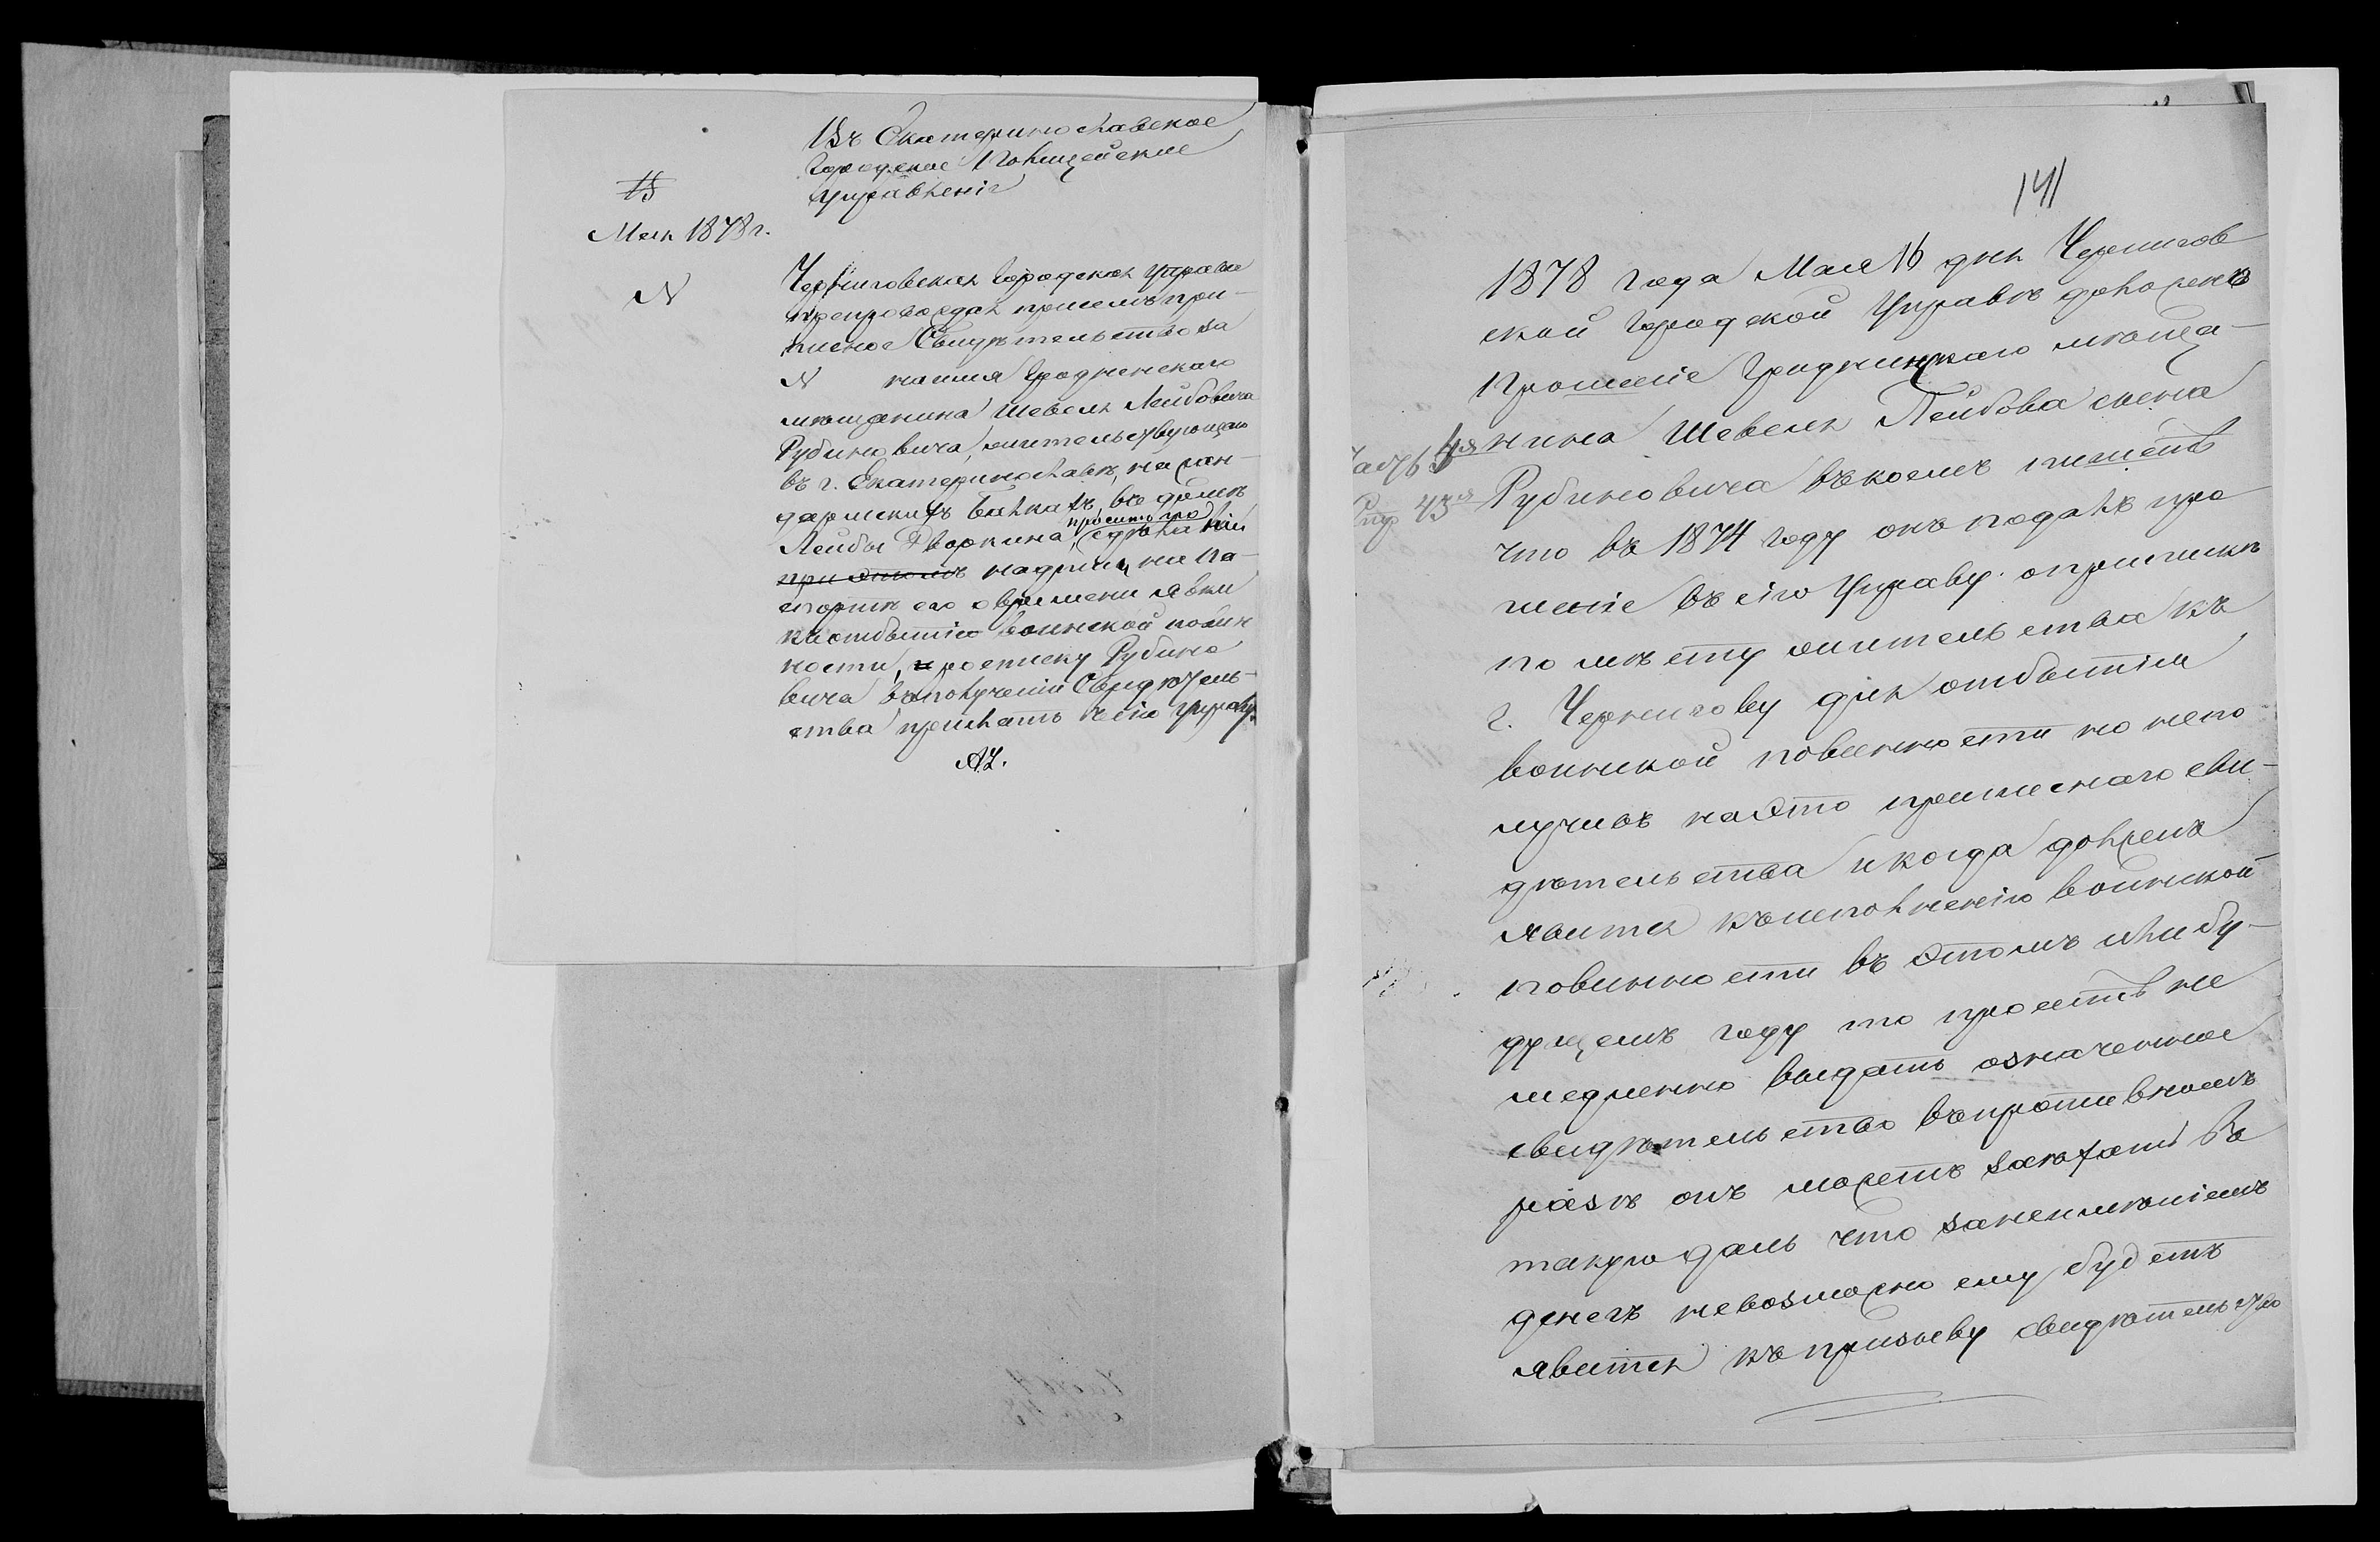 Въ Екатеринославское
Городское Полицейское
Управленіе
15
Мая 1878 г.
N
Черниговская Городская Управа
препровождая при семъ при-
писное Свидѣтельство за
N на имя Гродненскаго
мѣщанина Шевеля Лейбовича
Рубиновича, жительствующаго
въ г. Екатеринославѣ, на жан-
дармскихъ Балкахъ, въ домѣ
Лейбы Дворкина, проситъ по сдѣланіи
при этомъ надписи на па-
спортѣ его о времени явки
къ отбытію воинской повин
ности, росписку Рубино
вича въ полученіи Свидѣтель-
ства прислать въ сію Управу.
141
1878 года Мая 16 дня Чернигов
ской Городской Управѣ доложено
Прошеніе Гродненскаго мѣща-
нина Шевеля Лейбова сына
Рубиновича въ коемъ пишетъ
Часть 4я
Стр 43я
что въ 1874 году онъ подалъ про
шеніе въ сію Управу о припискѣ
по мѣсту жительства къ
г. Чернигову для отбытія
воинской повинности но непо
лучивъ на это приписнаго сви-
дѣтельства и когда долженъ
явится къ исполненію воинской
повинности въ этомъ или бу-
дущемъ году то проситъ не
медленно выдать означенное
свидѣтельство въ противномъ
разѣ онъ можетъ заѣхать въ
такую даль что за неимѣніемъ
денегъ невозможно ему будетъ
явится къ призыву свидѣтельство